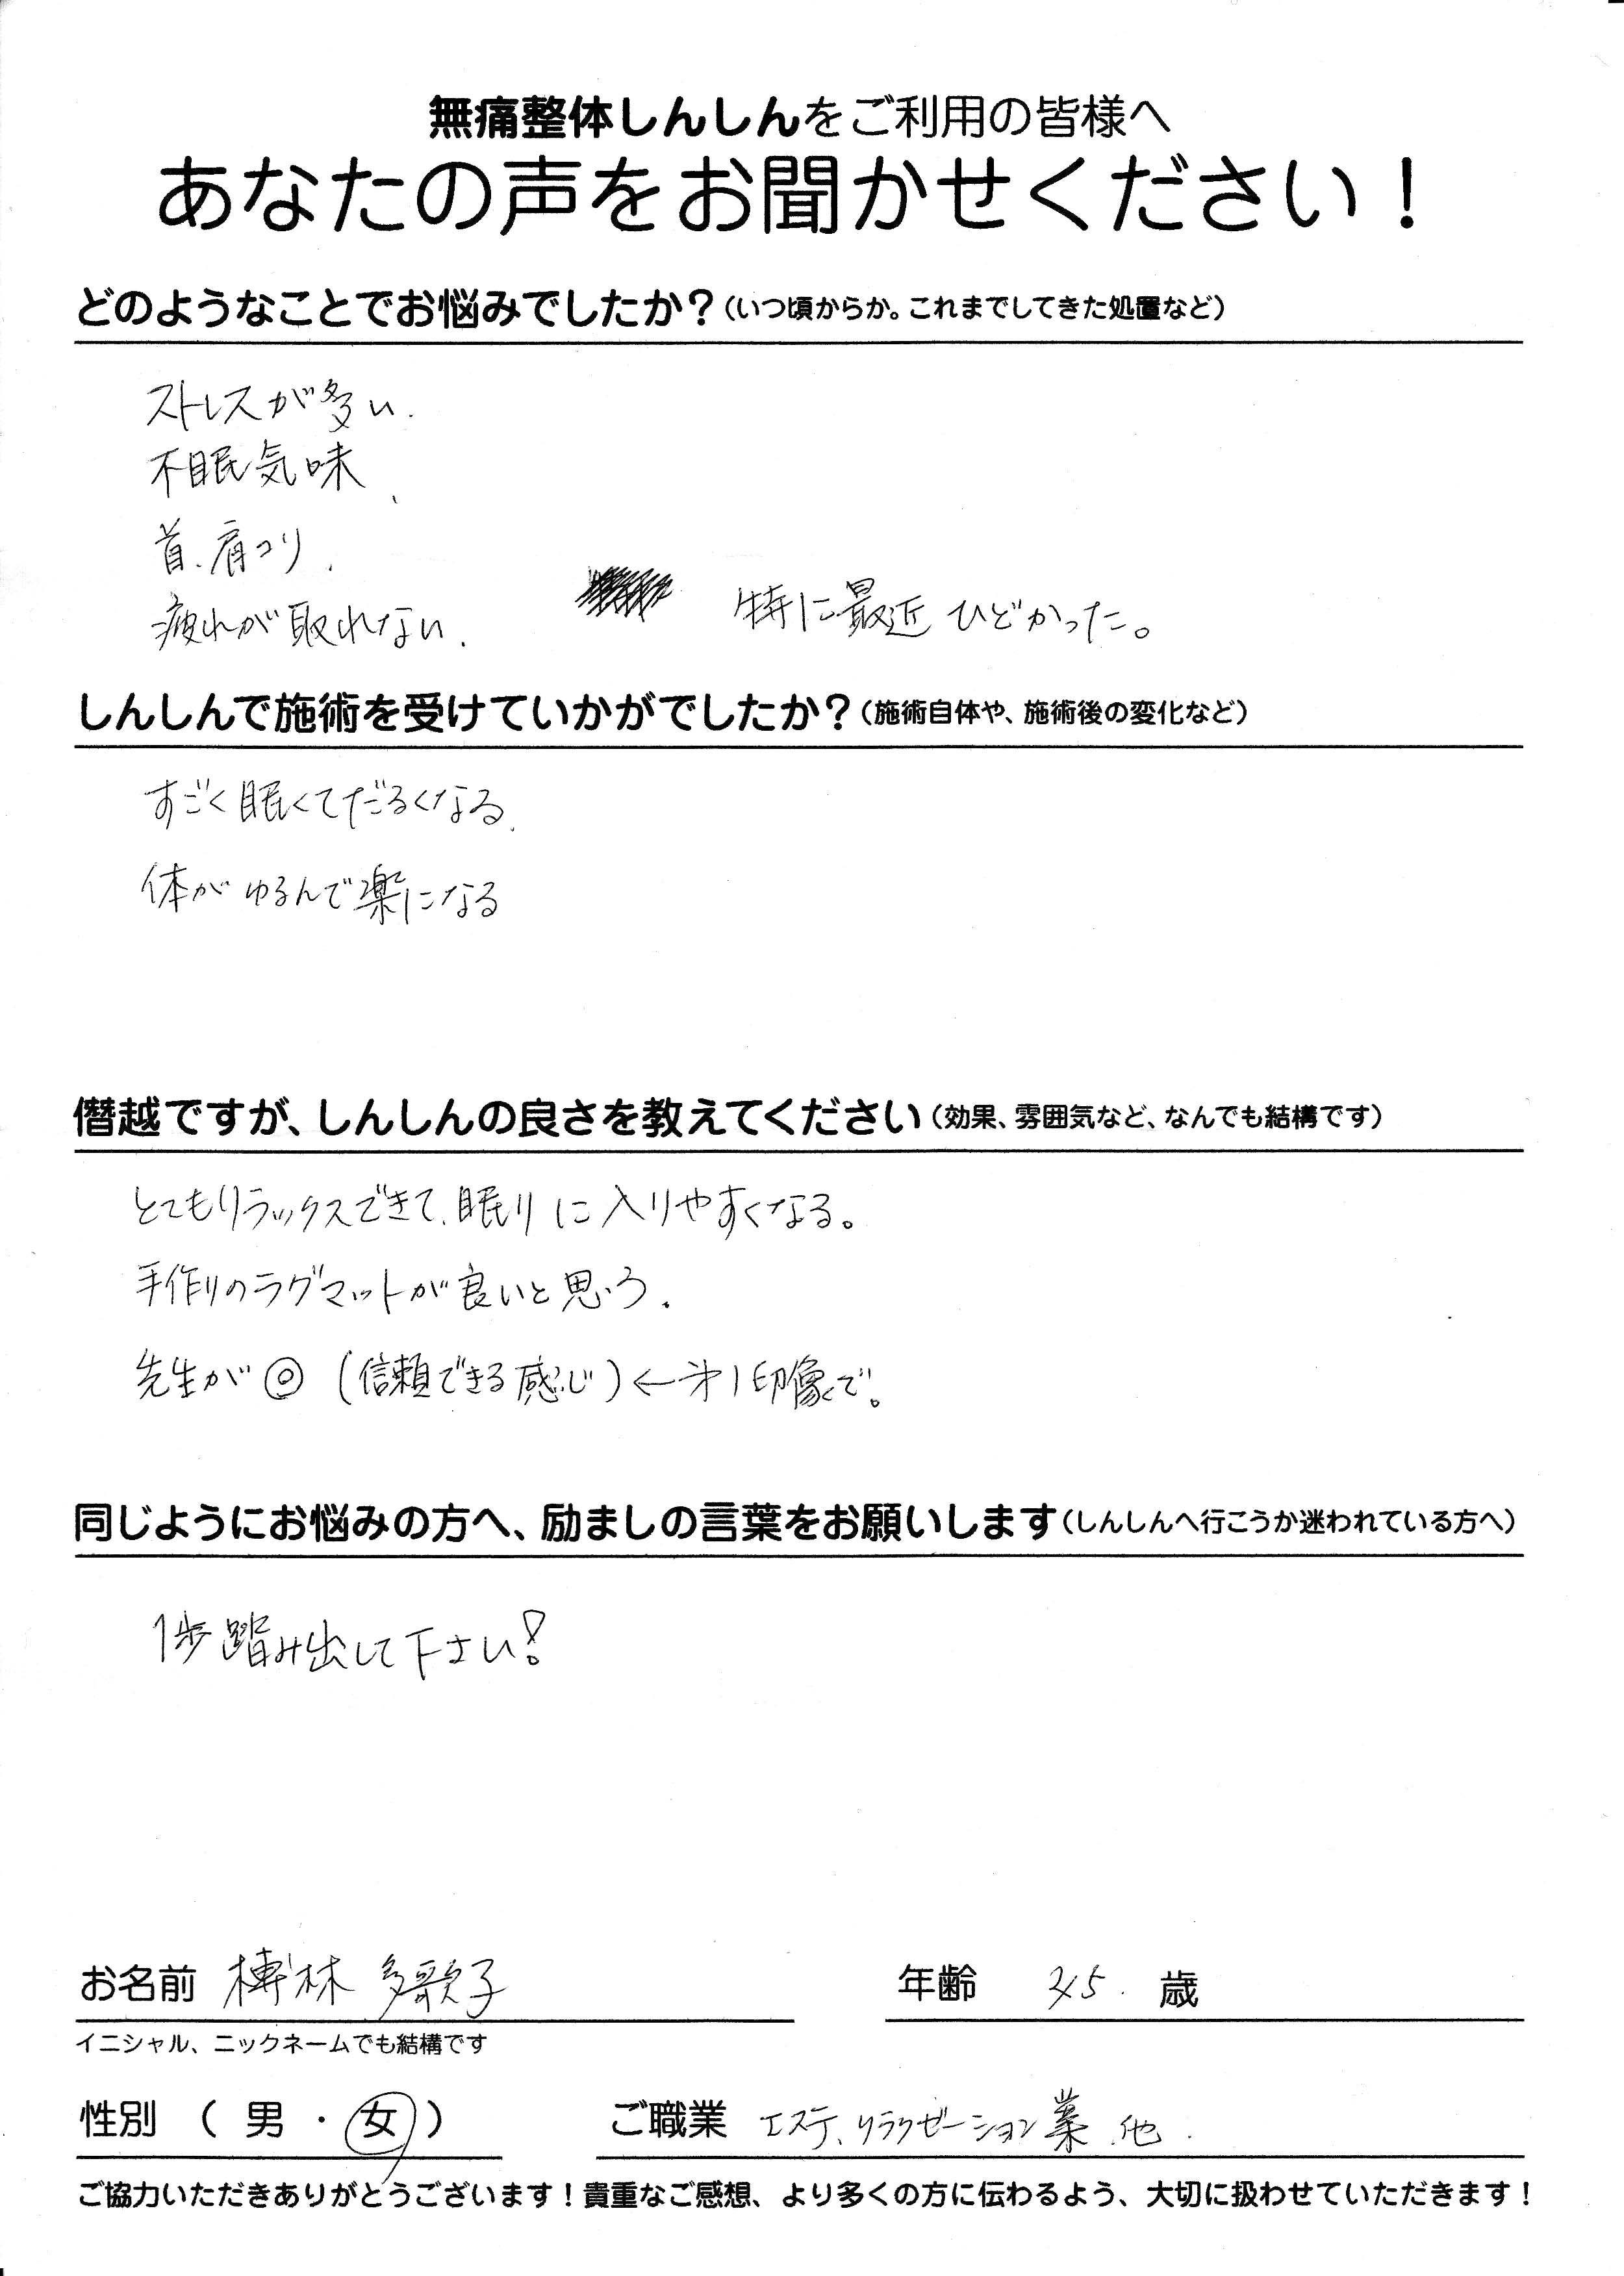 無痛整体しんしんをご利用の皆様へ
あなたの声をお聞かせください!
どのようなことでお悩みでしたか?(いつ頃からか。これまでしてきた処置など)
ストレスが多い.
不眠気味、
首、肩コリ.
疲れが取れない. 特に最近ひどかった。
しんしんで施術を受けていかがでしたか?(施術自体や、施術後の変化など)
すごく眠くてだるくなる、
体がゆるんで楽になる
僭越ですが、しんしんの良さを教えてください(効果、雰囲気など、なんでも結構です)
とてもリラックスできて、眠りに入りやすくなる。
手作りのラグマットが良いと思う.
先生が◎(信頼できる感じ)←才1印像で。
同じようにお悩みの方へ、励ましの言葉をお願いします(しんしんへ行こうか迷われている方へ)
1歩踏み出して下さい!
お名前 林 多歌子 年齢 歳
イニシャル、ニックネームでも結構です
性別 ( 男 ・ 女 ) ご職業 エステ、リラクゼーション業.他.
ご協力いただきありがとうございます!貴重なご感想、より多くの方に伝わるよう、大切に扱わせていただきます!